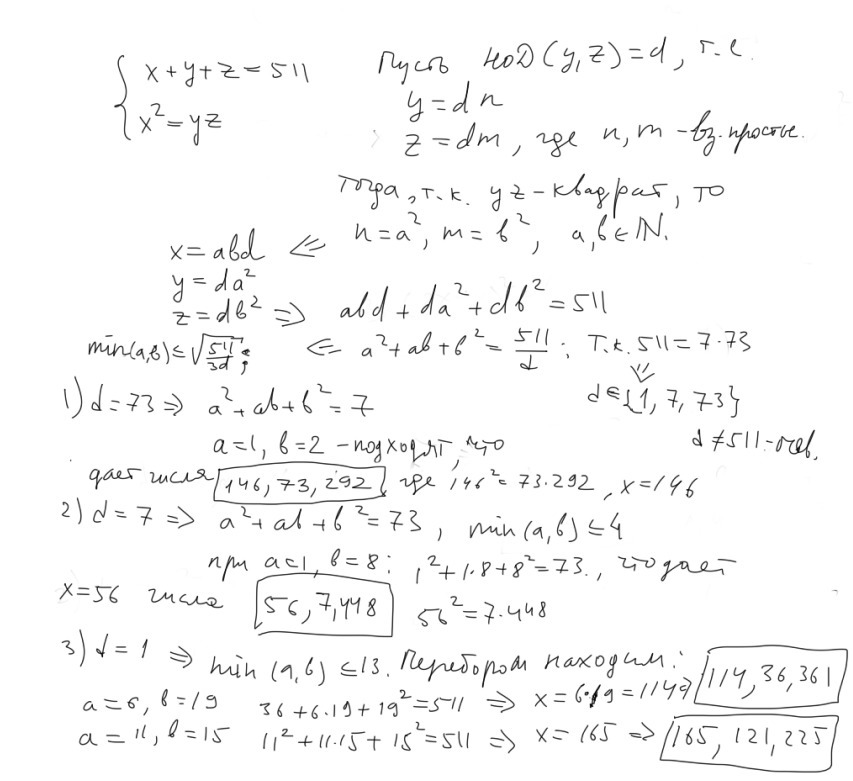 x+y+z=511
x²=yz
Пусть НОД(y,z)=d, т.е.
y=dn
z=dm, где n,m-вз.простые.
Тогда, т.к. yz-квадрат, то
x=abd ⇐ n=a², m=b², a,b∈ℕ.
y=da²
z=db² ⇒ abd+da²+db²=511
min(a,b)≤√(511/3d); ⇐ a²+ab+b²=511/d; Т.к. 511=7·73
⇓
d∈{1,7,73}
1) d=73 ⇒ a²+ab+b²=7
d≠511-очев.
a=1, b=2 -подходят, что
дает числа 146,73,292, где 146²=73·292, x=146
2) d=7 ⇒ a²+ab+b²=73, min(a,b)≤4
при a=1, b=8: 1²+1·8+8²=73., что дает
x=56 числа 56,7,448 56²=7·448
3) d=1 ⇒ min(a,b)≤13. Перебором находим:
a=6, b=19 36+6·19+19²=511 ⇒ x=6·19=114⇒ 114,36,361
a=11, b=15 11²+11·15+15²=511 ⇒ x=165 ⇒ 165,121,225